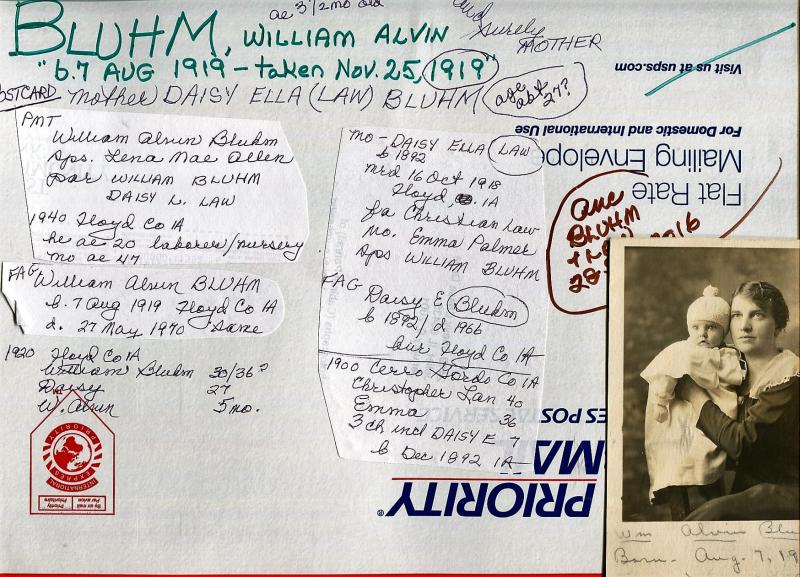 ae 3 1/2 mo old
and surely
MOTHER
BLUHM, WILLIAM ALVIN
"b. 7 AUG 1919 - taken Nov. 25, 1919"
POSTCARD mother DAISY ELLA (LAW) BLUHM
age abt 27?
PMT
William Alvin Bluhm
sps. Lena Mae Allen
par WILLIAM BLUHM
DAISY L. LAW
1940 Floyd Co IA
he ae 20 laborer/nursery
mo ae 47
FAG William Alvin BLUHM
b. 7 Aug 1919 Floyd Co IA
d. 27 May 1970 same
1920 Floyd Co IA
William Bluhm 30/36?
Daisy 27
W. Alvin 5 mo.
mo - DAISY ELLA LAW
b 1892
mrd 16 Oct 1918
Floyd, IA
fa Christian Law
mo. Emma Palmer
sps WILLIAM BLUHM
FAG Daisy E Bluhm
b 1892, d 1966
bur Floyd Co IA
1900 Cerro Gordo Co IA
Christopher Lan 40
Emma 36
3 ch incl DAISY E 7
b Dec 1892 IA
Visit us at usps.com
For Domestic and International Use
Flat Rate
Mailing Envelope
anc
BLUHM
PRIORITY
MA
ES POS
PRIORITY
EXPRESS
INTERNATIONAL
By air mail
Par avion
Priority
Prioritaire
Wm Alvin Blu
Born - Aug. 7, 19